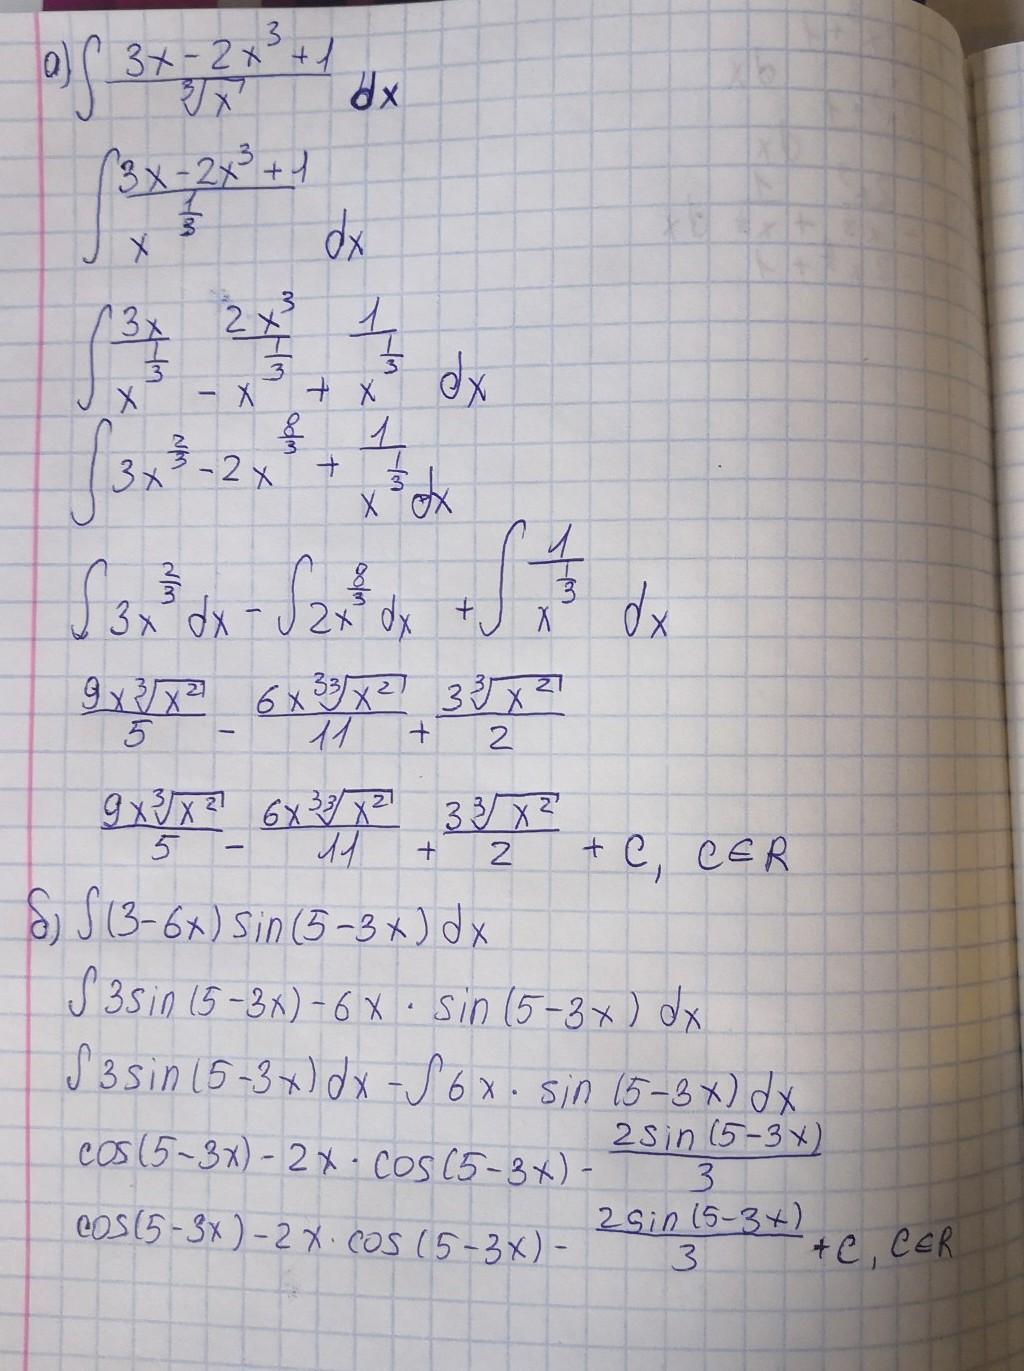 а) ∫ (3x - 2x³ + 1)/∛x dx
∫ (3x - 2x³ + 1)/x^(1/3) dx
∫ 3x/x^(1/3) - 2x³/x^(1/3) + 1/x^(1/3) dx
∫ 3x^(2/3) - 2x^(8/3) + 1/x^(1/3) dx
∫ 3x^(2/3) dx - ∫ 2x^(8/3) dx + ∫ 1/x^(1/3) dx
9x∛x²/5 - 6x³∛x²/11 + 3∛x²/2
9x∛x²/5 - 6x³∛x²/11 + 3∛x²/2 + C, C∈R
б) ∫(3-6x) sin(5-3x) dx
∫ 3sin(5-3x) - 6x · sin(5-3x) dx
∫ 3sin(5-3x) dx - ∫ 6x · sin(5-3x) dx
cos(5-3x) - 2x · cos(5-3x) - 2sin(5-3x)/3
cos(5-3x) - 2x · cos(5-3x) - 2sin(5-3x)/3 + C, C∈R